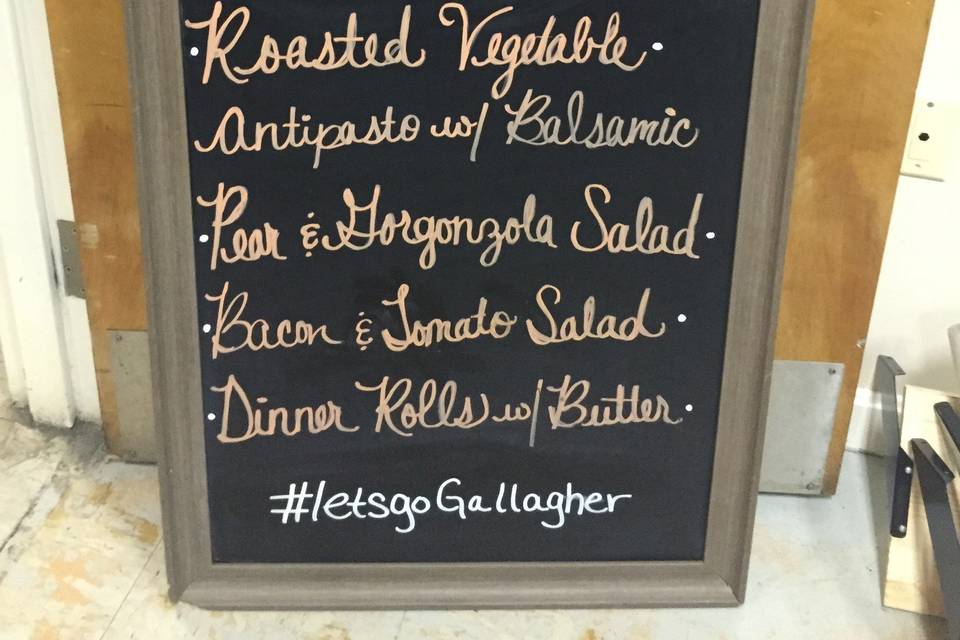 • Roasted Vegetable •
Antipasto w/ Balsamic
• Pear & Gorgonzola Salad •
• Bacon & Tomato Salad •
• Dinner Rolls w/ Butter •
#letsgoGallagher